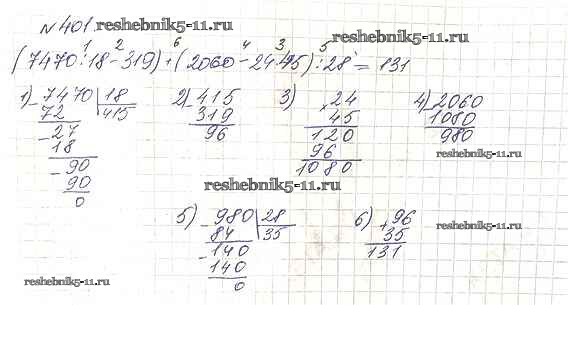 №401.
reshebnik5-11.ru
reshebnik5-11.ru
(7470:18-319)+(2060-24·45):28=131
1 2 6 4 3 5
1) 7470 |18
-72 415
-27
18
-90
90
0
2) -415
319
96
3) ×24
45
120
96
1080
4) -2060
1080
980
reshebnik5-11.ru
reshebnik5-11.ru
5) -980 |28
84 35
-140
140
0
6) +96
35
131
reshebnik5-11.ru
reshebnik5-11.ru